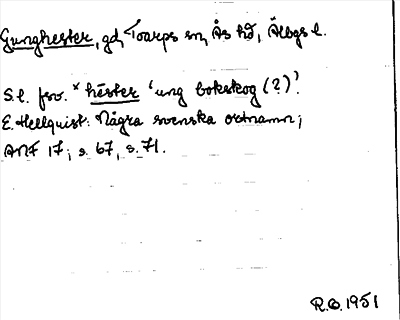 Gunghester, gd, Toarps sn, Ås hd, Älvgs l.
S.l. fsv. * hēster 'ung bokskog (?)'.
E. Hellquist: Några svenska ortnamn;
ANF 17, s. 67, s. 71.
R.O. 1951